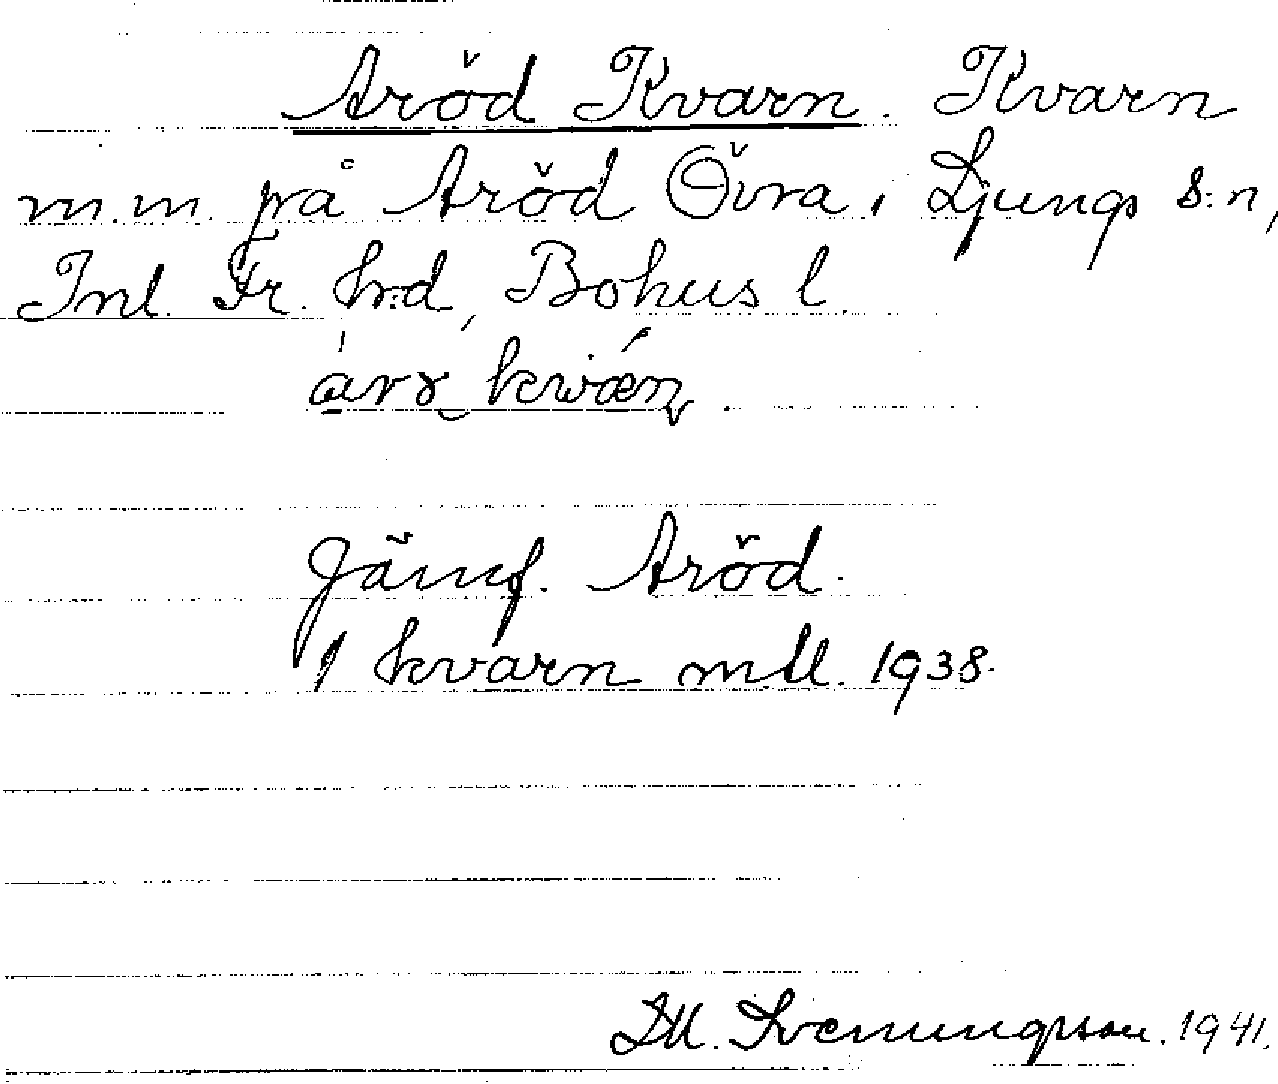 Aröd Kvarn. Kvarn
m.m. på Aröd Övra i Ljungs s:n,
Inl. Fr. h:d, Bohus l.
Jämf. Aröd.
1 kvarn mtl. 1938.
Svenungsson. 1941.